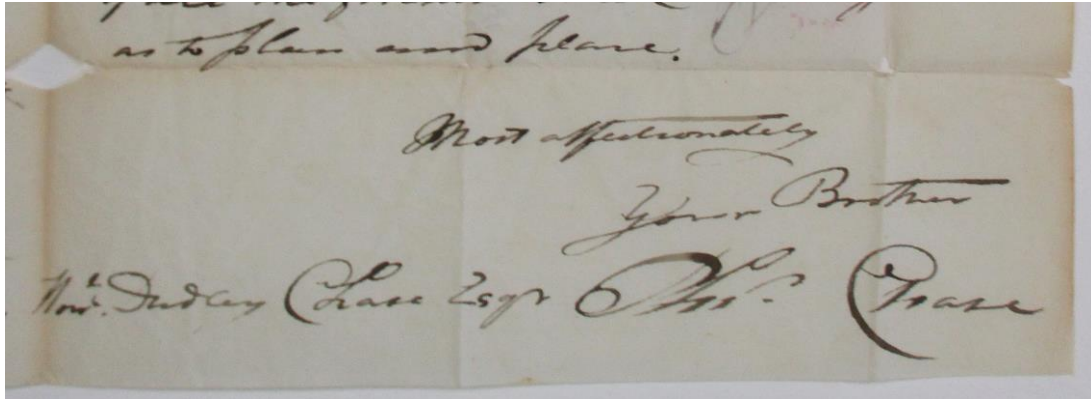 as to plan and place.
Most affectionately
Your Brother
Honl. Dudley Chase Esqr Phr. Chase